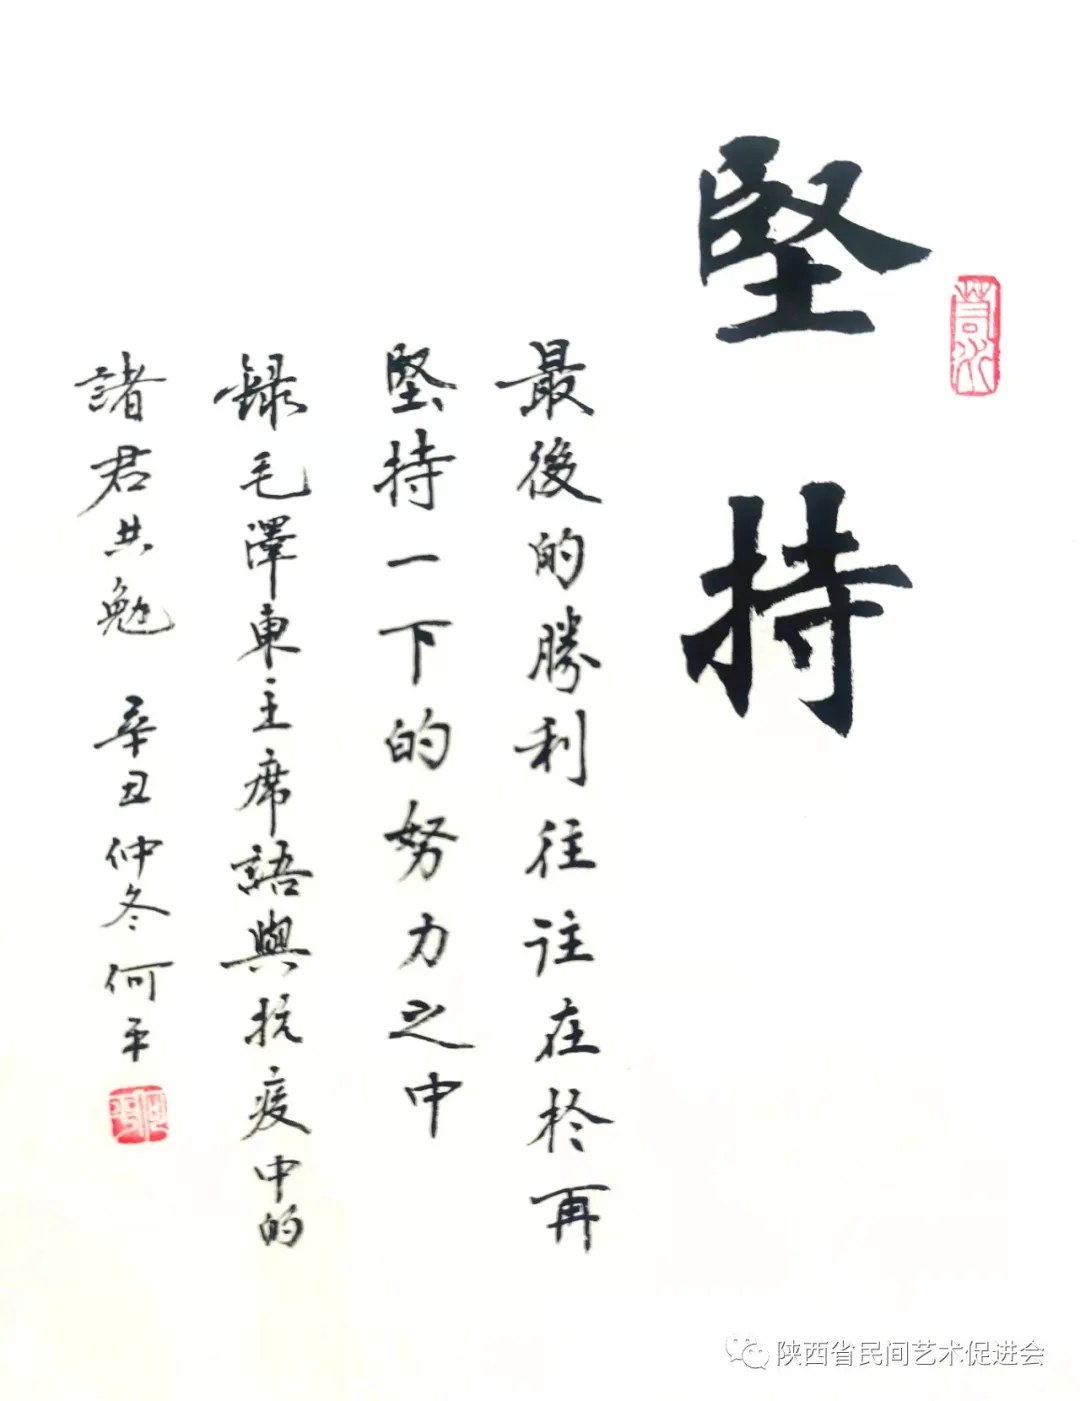 堅持
最後的勝利往往在於再
堅持一下的努力之中
錄毛澤東主席語與抗疫中的
諸君共勉 辛丑仲冬何平
陕西省民间艺术促进会